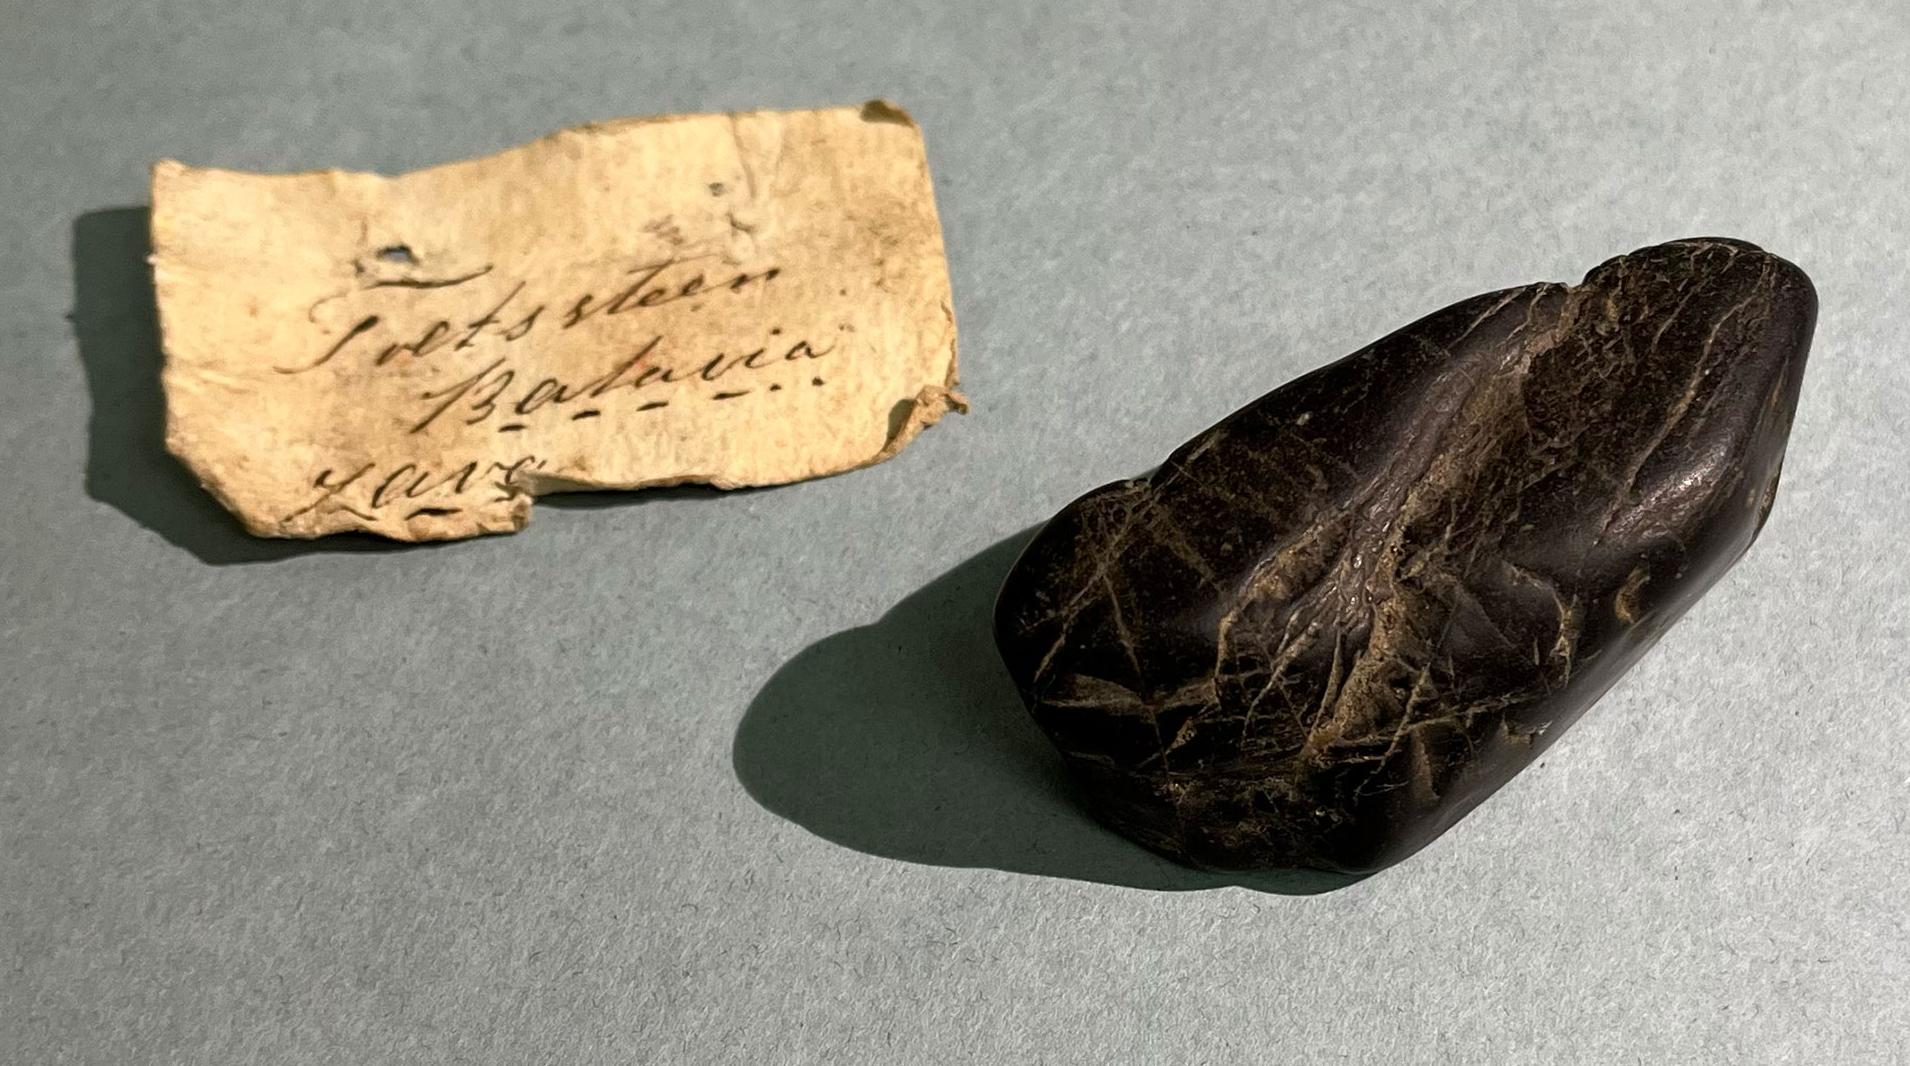 Toetssteen
Batavia
Lava